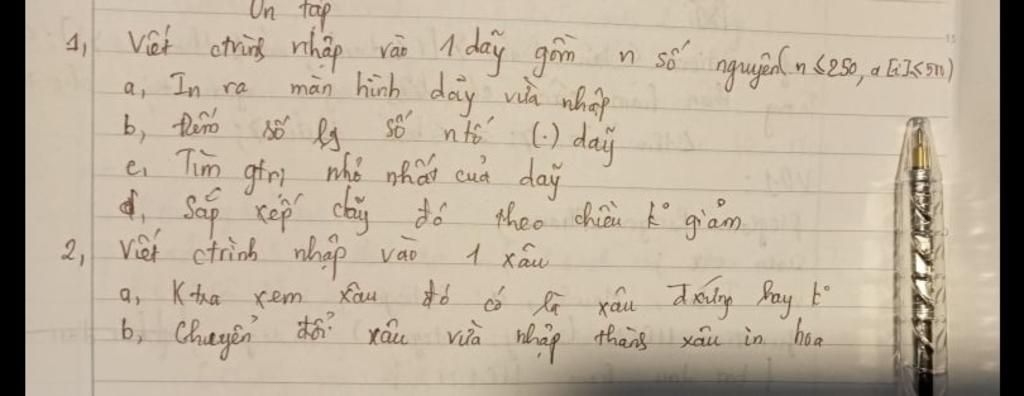 Ôn tập
1, Viết ctrình nhập vào 1 dãy gồm n số nguyên (n ≤ 250, a[i] ≤ 500)
a, In ra màn hình dãy vừa nhập
b, Đếm số lg số ntố (.) dãy
c, Tìm gtrị nhỏ nhất của dãy
d, Sắp xếp dãy đó theo chiều k° giảm
2, Viết ctrình nhập vào 1 xâu
a, Ktra xem xâu đó có là xâu đxứng hay k°
b, Chuyển đổi xâu vừa nhập thành xâu in hoa